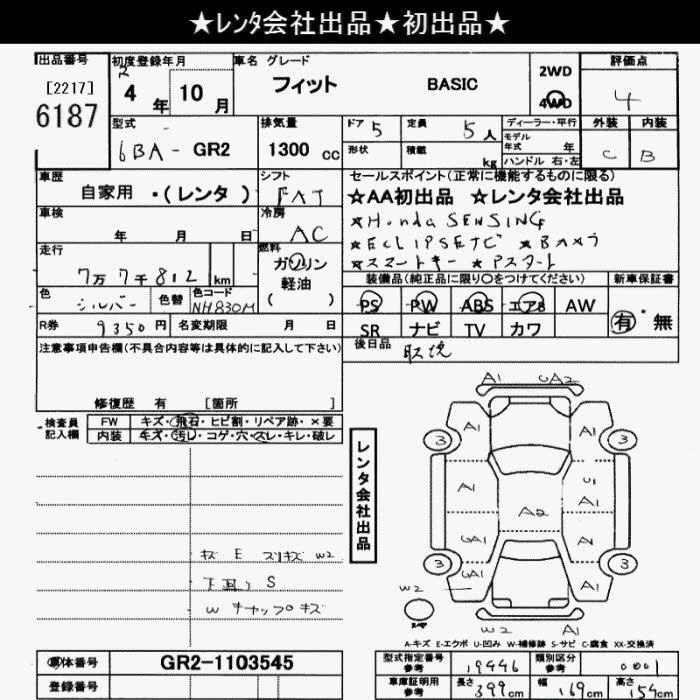 ★レンタ会社出品★初出品★
出品番号
[2217]
6187
初度登録年月
R 4 年 10 月
車名 グレード
フィット BASIC
2WD
4WD
評価点
4
型式
6BA- GR2
排気量
1300 cc
ドア 5
定員 5人
形状
積載 kg
ディーラー・平行
モデル
年式 年
ハンドル 右・左
外装 内装
C B
車歴
自家用 ・(レンタ)
シフト
FAT
セールスポイント(正常に機能するものに限る)
☆AA初出品 ☆レンタ会社出品
★Honda SENSING
★ECLIPSEナビ ★Bカメラ
★スマートキー ★Pスタート
車検
年 月 日
冷房
AC
走行
7万7千812 km
燃料
ガソリン
軽油
( )
装備品(純正品に限り○をつけてください)
新車保証書
PS PW ABS エアB AW
SR ナビ TV カワ
有・無
色
シルバー
色替
色コード
NH830M
R券 9350円
名変期限 月 日
後日品 取説
注意事項申告欄(不具合内容等は具体的に記入して下さい)
修復歴 有 [箇所
検査員
記入欄
FW キズ・飛石・ヒビ割・リペア跡・×要
内装 キズ・汚れ・コゲ・穴・スレ・キレ・破レ
レンタ会社出品
A1 UA2
A1 A1
3 3
A1 U1
A1
A2
A1
3 3
A1
W2
W2 A1
キズ E スリキズ W2
下廻り S
W キャップキズ
A-キズ E-エクボ U-凹み W-補修跡 S-サビ C-腐食 XX-交換済
車体番号 GR2-1103545
登録番号
型式指定番号
参考
19446
類別区分
参考
0001
車庫証明用
参考
長さ 399cm
幅 169cm
高さ 154cm